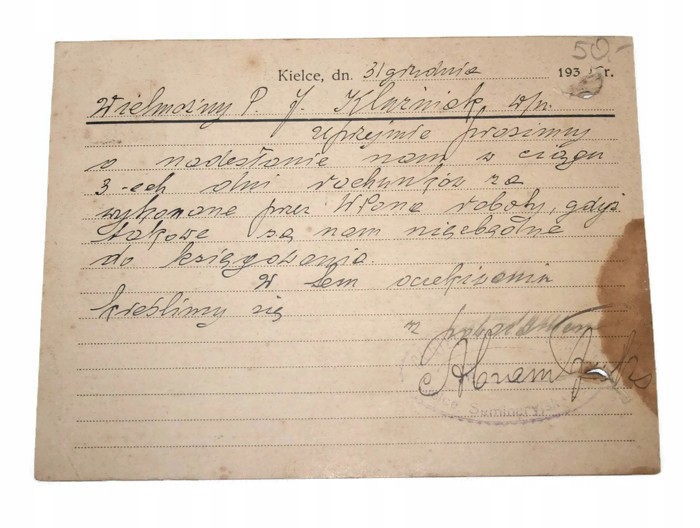 50.-
Kielce, dn. 31 grudnia 193 r.
Wielmożny P. J. w/m.
Uprzejmie prosimy
o nadesłanie nam w ciągu
3-ech dni rachunków za
wykonane przez WPana roboty, gdyż
takowe są nam niezbędne
do księgowania
W tem oczekiwaniu
kreślimy się
z poważaniem
Abram